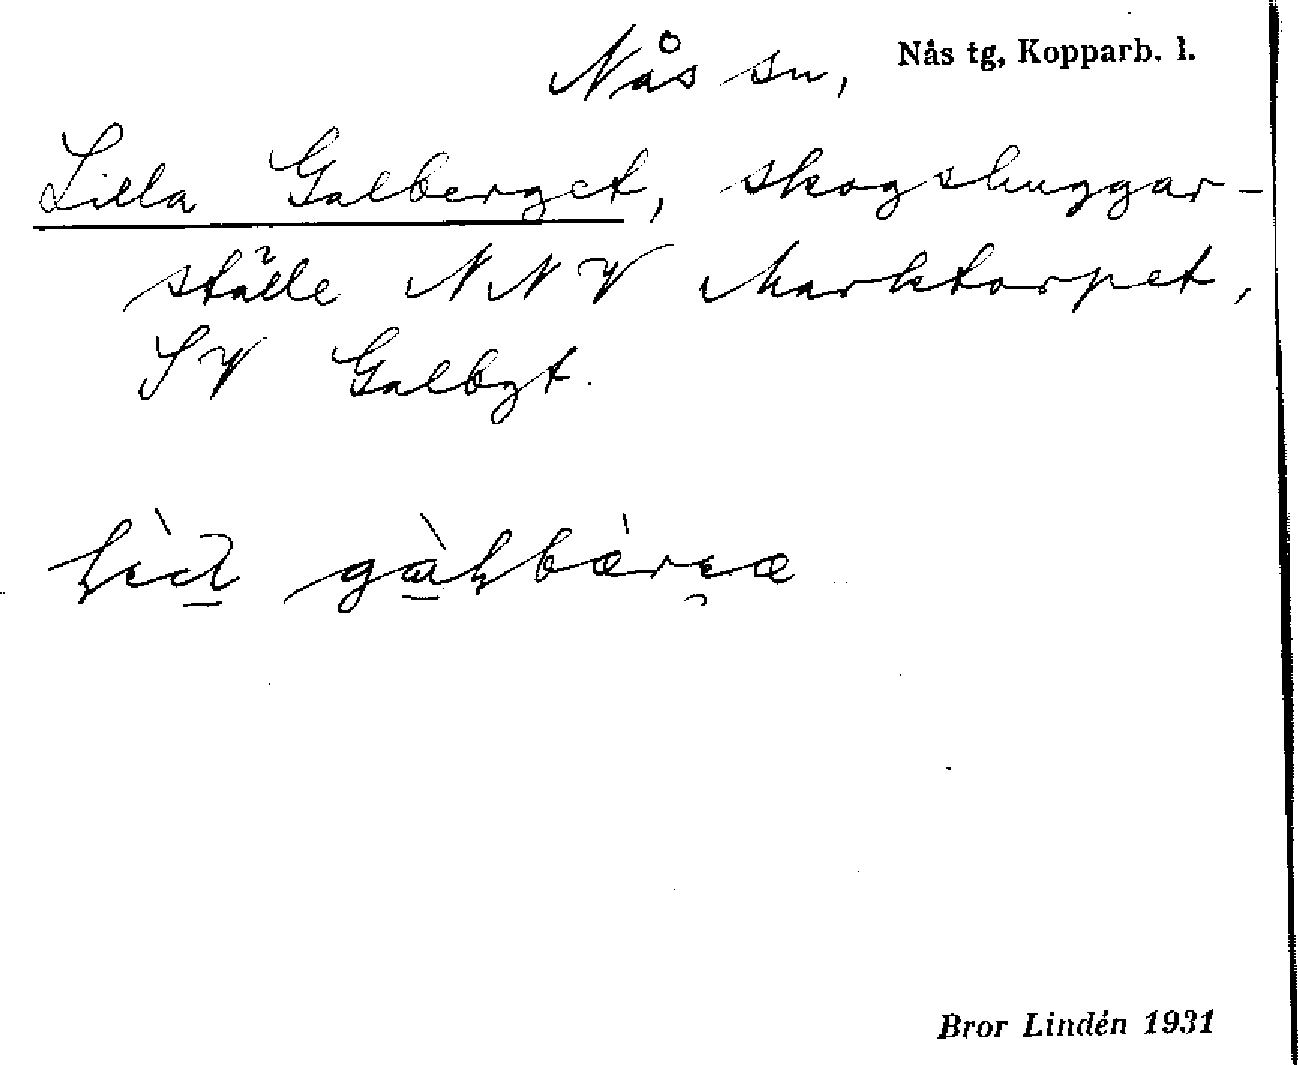 Nås sn, Nås tg, Kopparb. l.
Lilla Galberget, skogshuggar-
ställe NNV Marktorpet,
SV Galbgt.
Bror Lindén 1931